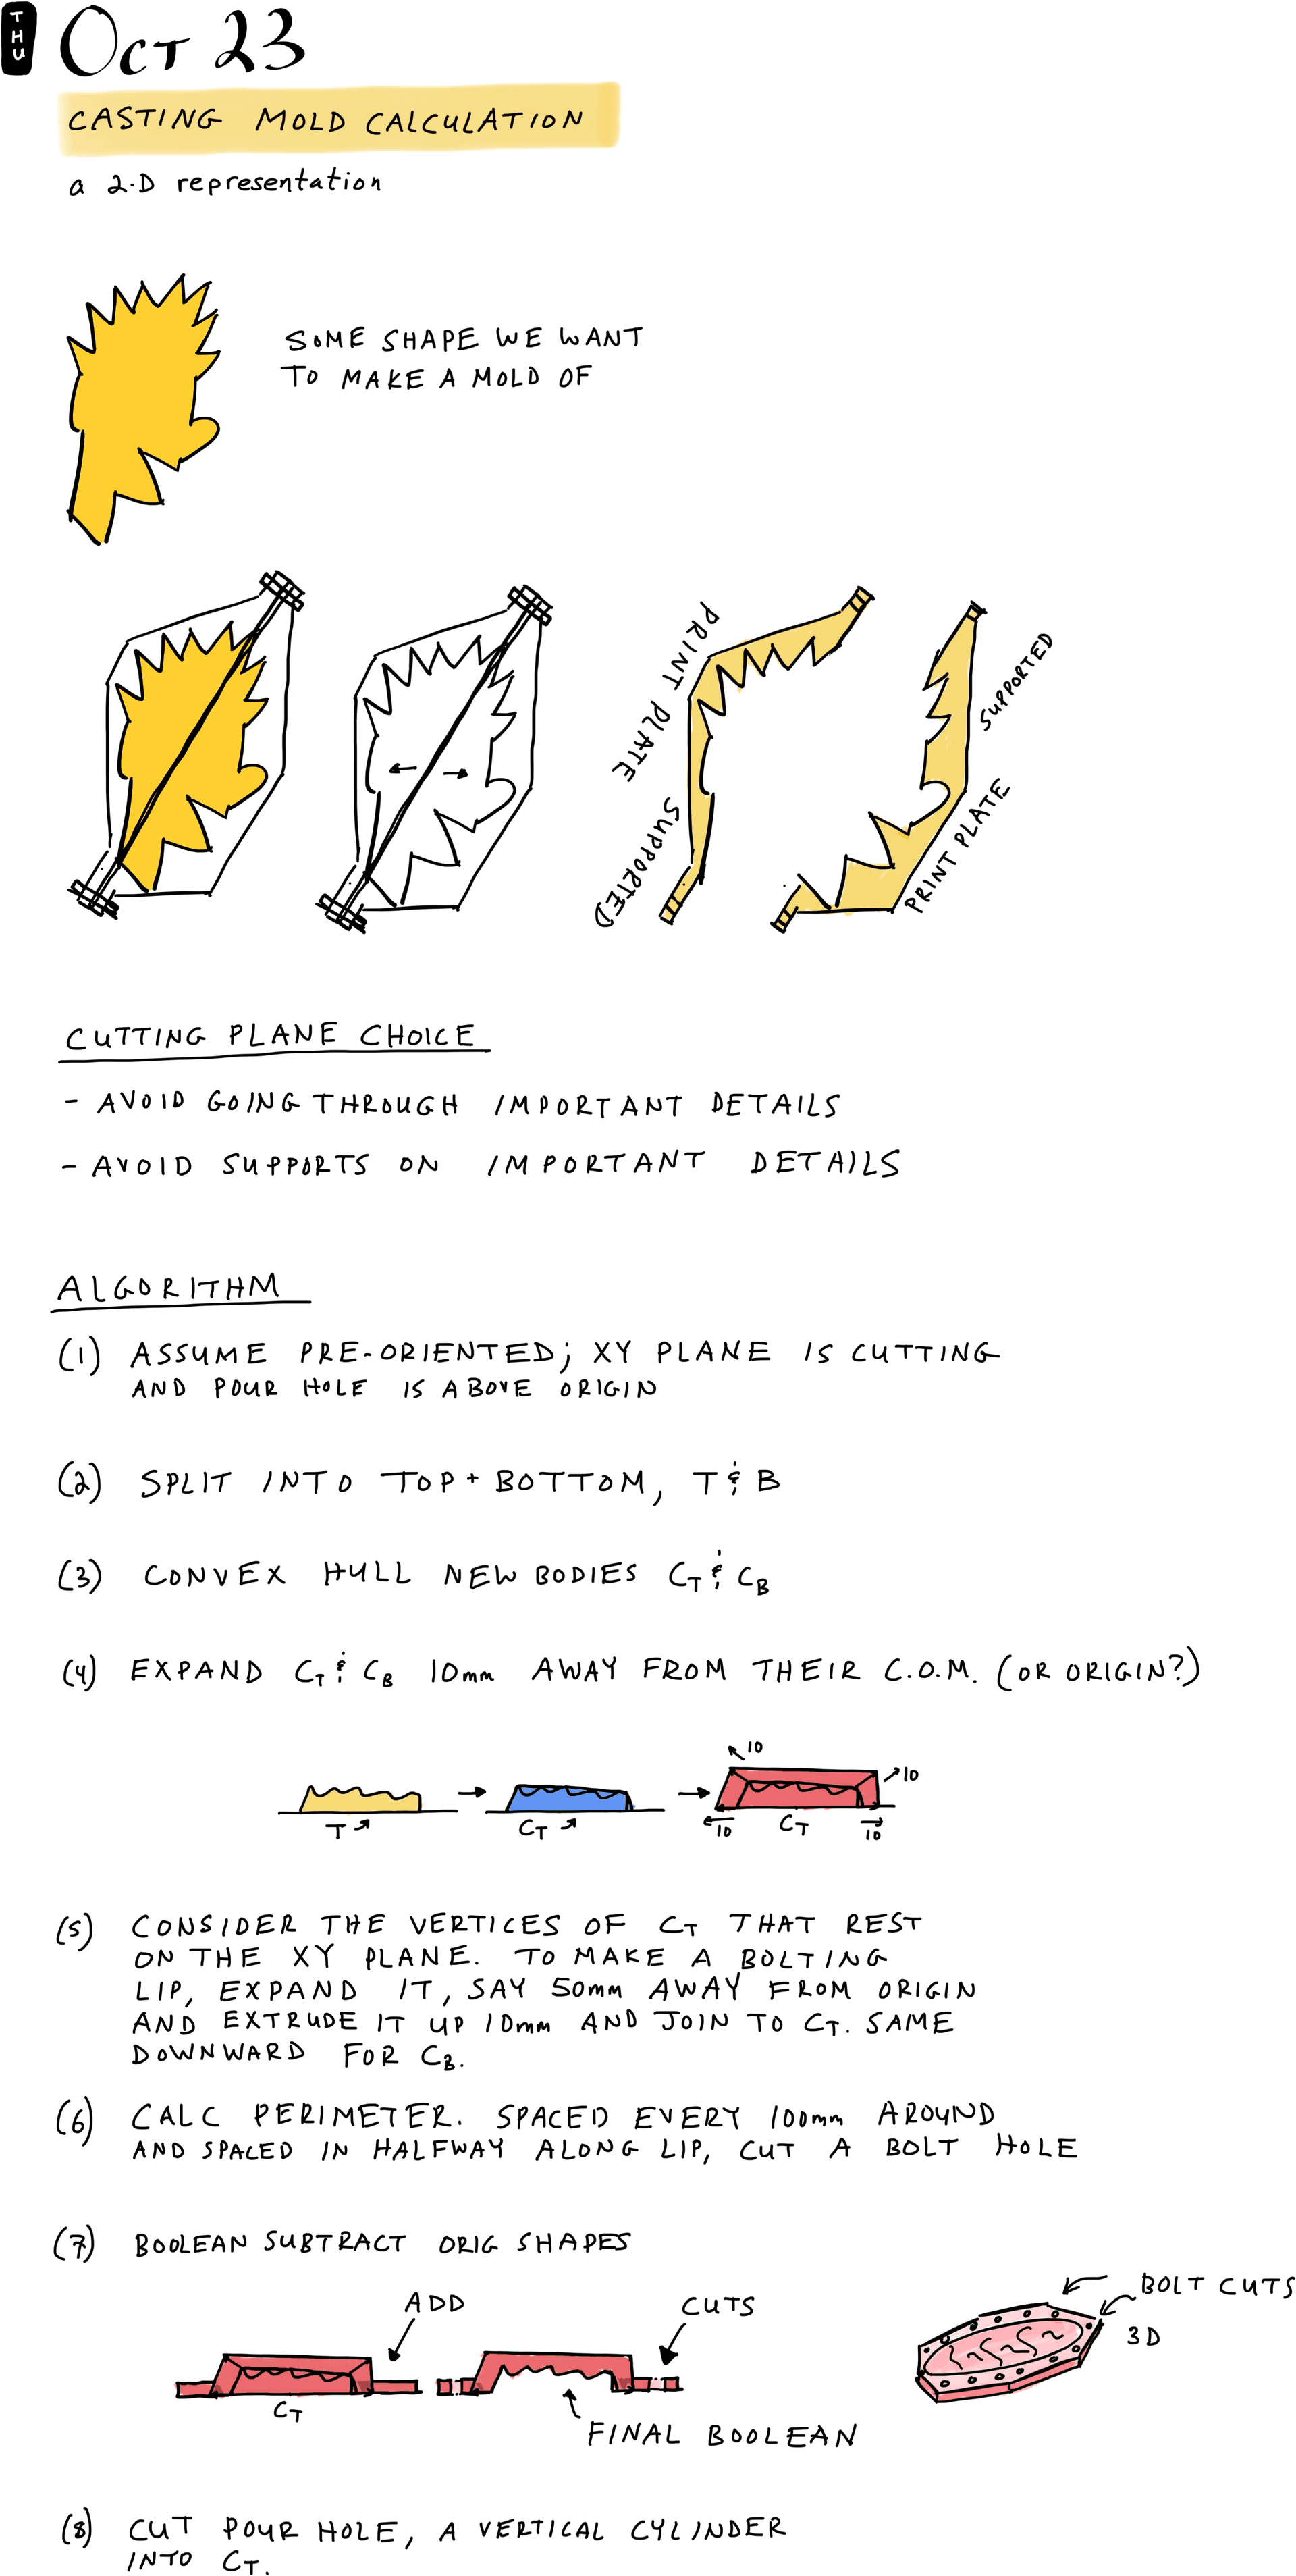 THU
OCT 23
CASTING MOLD CALCULATION
a 2-D representation
SOME SHAPE WE WANT
TO MAKE A MOLD OF
PRINT PLATE
SUPPORTED
SUPPORTED
PRINT PLATE
CUTTING PLANE CHOICE
- AVOID GOING THROUGH IMPORTANT DETAILS
- AVOID SUPPORTS ON IMPORTANT DETAILS
ALGORITHM
(1) ASSUME PRE-ORIENTED; XY PLANE IS CUTTING
AND POUR HOLE IS ABOVE ORIGIN
(2) SPLIT INTO TOP + BOTTOM, T & B
(3) CONVEX HULL NEW BODIES CT & CB
(4) EXPAND CT & CB 10mm AWAY FROM THEIR C.O.M. (OR ORIGIN?)
10
10
T
CT
10
CT
10
(5) CONSIDER THE VERTICES OF CT THAT REST
ON THE XY PLANE. TO MAKE A BOLTING
LIP, EXPAND IT, SAY 50mm AWAY FROM ORIGIN
AND EXTRUDE IT UP 10mm AND JOIN TO CT. SAME
DOWNWARD FOR CB.
(6) CALC PERIMETER. SPACED EVERY 100mm AROUND
AND SPACED IN HALFWAY ALONG LIP, CUT A BOLT HOLE
(7) BOOLEAN SUBTRACT ORIG SHAPES
ADD
CUTS
BOLT CUTS
3D
CT
FINAL BOOLEAN
(8) CUT POUR HOLE, A VERTICAL CYLINDER
INTO CT.